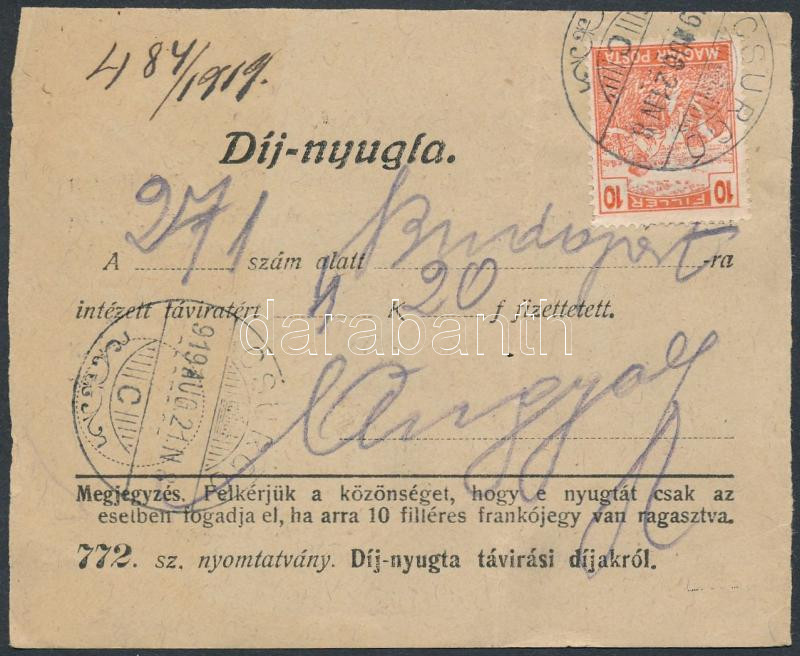 4 84/1919.
CSURGÓ
919 AUG 21 N
C
MAGYAR POSTA
10 FILLÉR 10
Díj-nyugta.
A 271 szám alatt Budapest-ra
intézett táviratért 4 K 20 f fizettetett.
darabanth
CSURGÓ
919 AUG 21 N
C
Angyal
Megjegyzés. Felkérjük a közönséget, hogy e nyugtát csak az
esetben fogadja el, ha arra 10 filléres frankójegy van ragasztva.
772. sz. nyomtatvány. Díj-nyugta távirási díjakról.